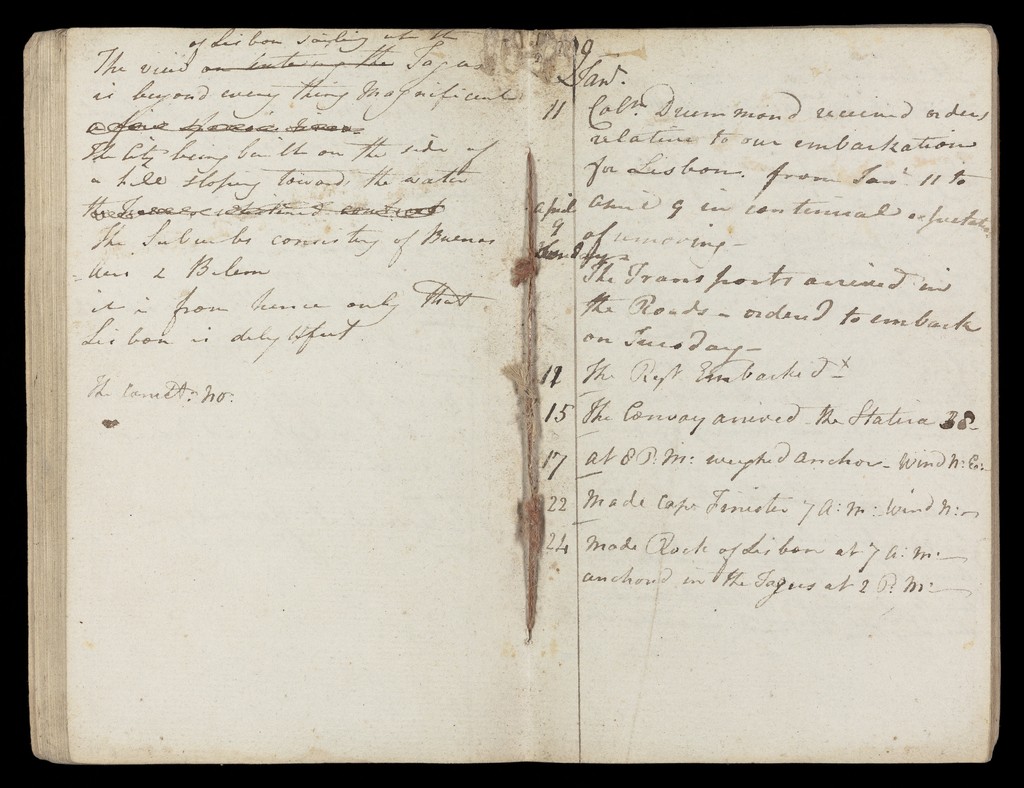 of Lisbon sailing up the
The view on entering the Tagus
is beyond every thing Magnificent
a fine
The City being built on the side of
a hill sloping towards the water
the
The Suburbs consisting of Buenos
Aires & Belem
it is from hence only that
Lisbon is delightful.
The Convt: no:
9
Jany.
11 Coln. Drummond received orders
relative to our embarkation
for Lisbon. from Jany. 11 to
April 9 in continual expectation
April
9
of removing —
Sunday
The Transports arrived in
the Roads – ordered to embark
on Tuesday —
12 The Regt Embarked x
15 The Convoy arrived – the Statira 38 –
17 at 8 P: M: weighed anchor – Wind N: E:
22 Made Cape Finister 7 A: M: Wind N:
24 Made Rock of Lisbon at 7 A: M: —
anchored in the Tagus at 2 P: M: —